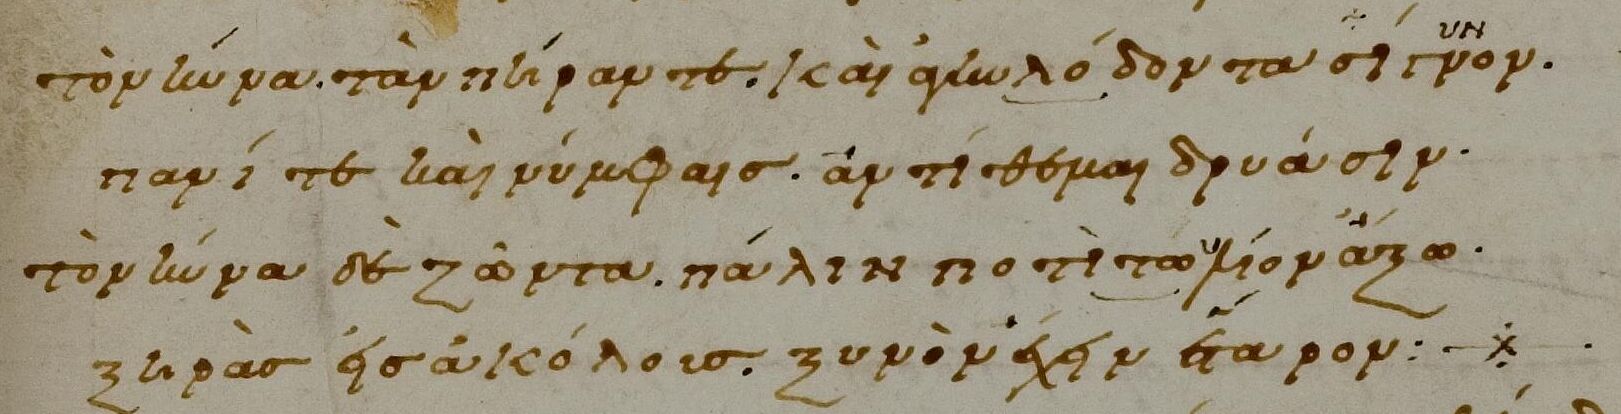 τὸν κύνα. τὰν πήραν τε. καὶ ἀγκυλόδοντα σίγυνον.
πανί τε καὶ νύμφαις. ἀντίθεμαι δρυάσιν.
τὸν κύνα δὲ ζῶντα. πάλιν ποτὶ τωὔλιον ἄξω.
ξηρὰς ἐς ἀκόλους. ξυνὸν ἔχειν ἕταρον: